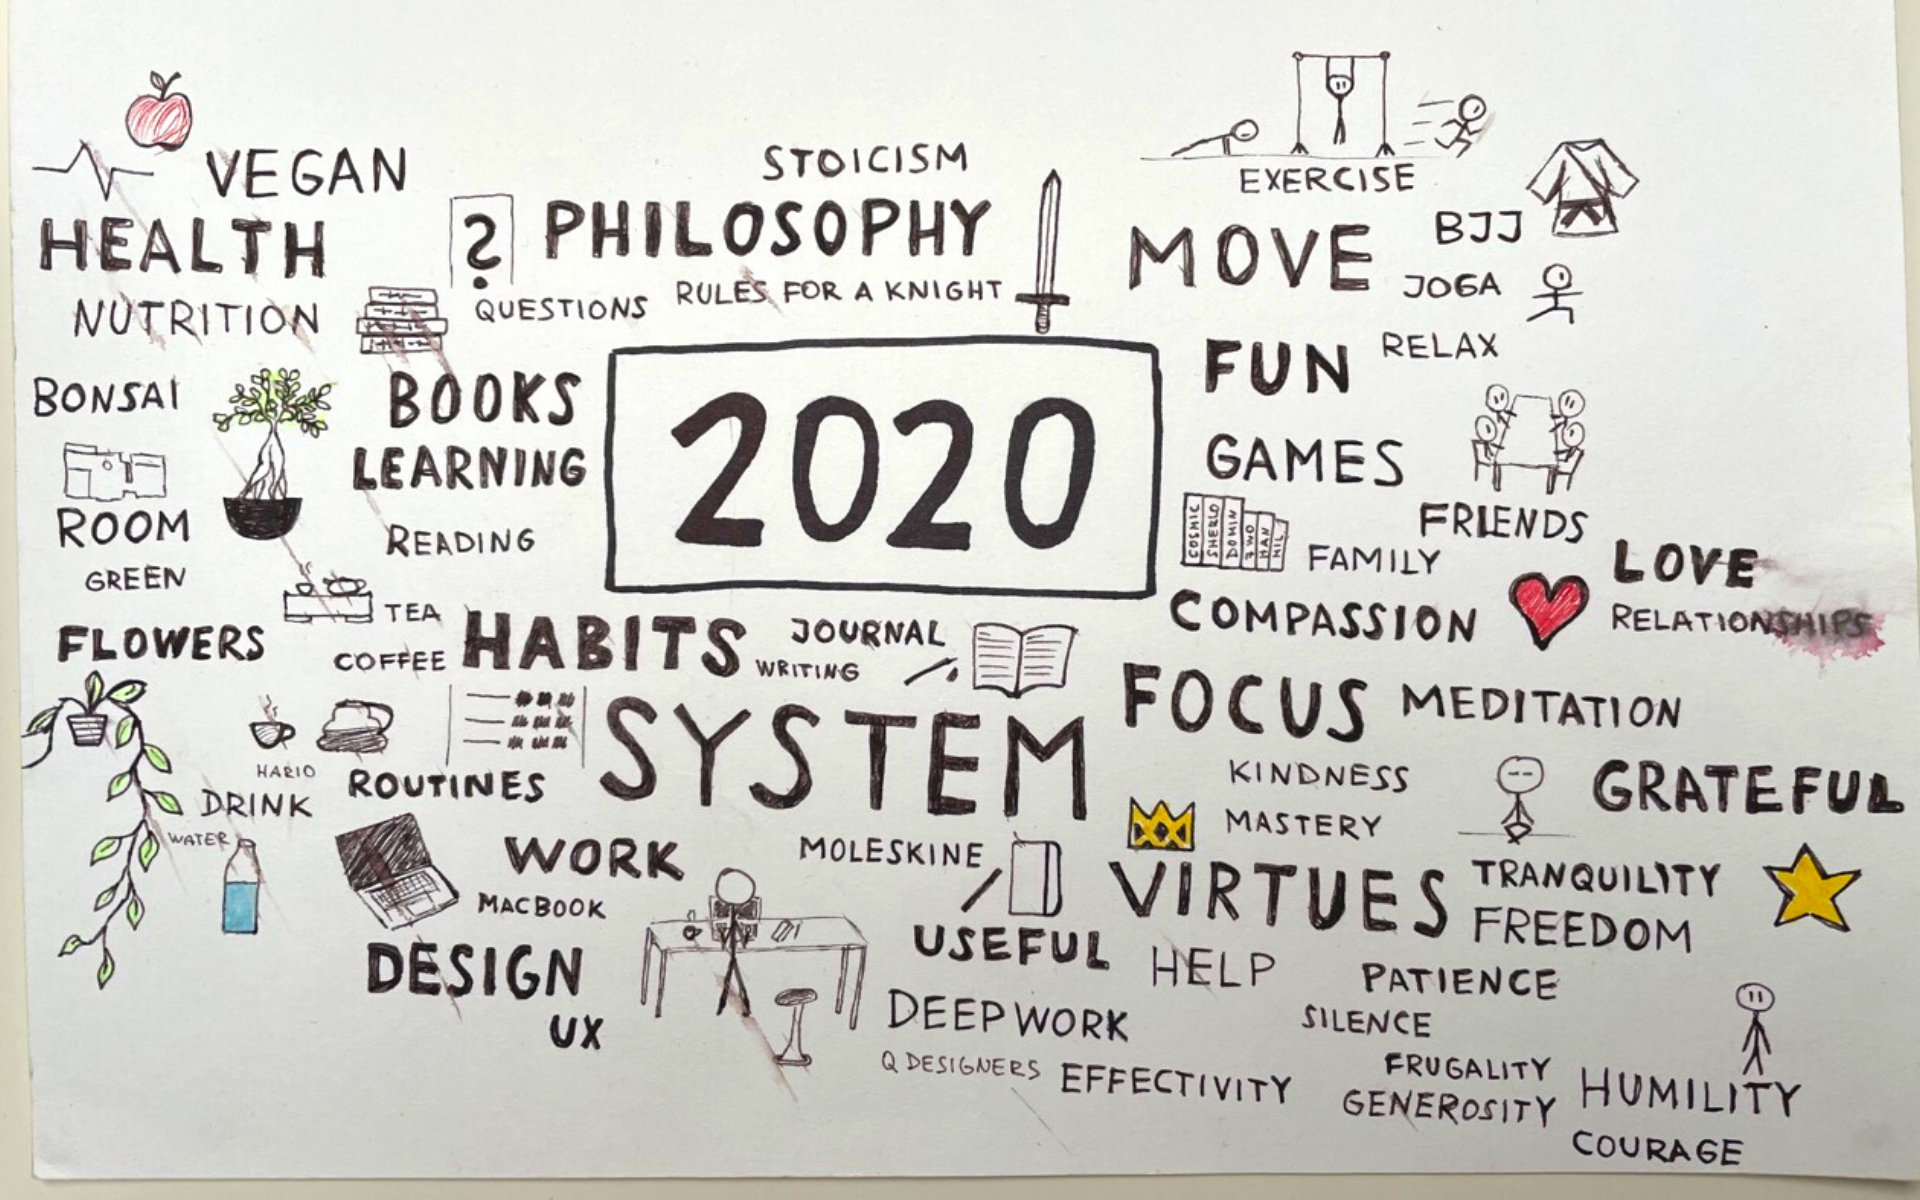 VEGAN
HEALTH
NUTRITION
?
STOICISM
PHILOSOPHY
QUESTIONS
RULES FOR A KNIGHT
EXERCISE
MOVE
BJJ
JOGA
RELAX
BONSAI
ROOM
GREEN
FLOWERS
BOOKS
LEARNING
READING
2020
FUN
GAMES
FRIENDS
COSMIC
SHERLO
DOMIN
7 WO
HAN
MIL
FAMILY
LOVE
RELATIONSHIPS
COMPASSION
TEA
COFFEE
HABITS
JOURNAL
WRITING
SYSTEM
FOCUS
MEDITATION
HARIO
DRINK
WATER
ROUTINES
KINDNESS
MASTERY
GRATEFUL
WORK
MACBOOK
DESIGN
UX
MOLESKINE
USEFUL
VIRTUES
TRANQUILITY
FREEDOM
HELP
PATIENCE
SILENCE
DEEP WORK
Q DESIGNERS
EFFECTIVITY
FRUGALITY
GENEROSITY
HUMILITY
COURAGE